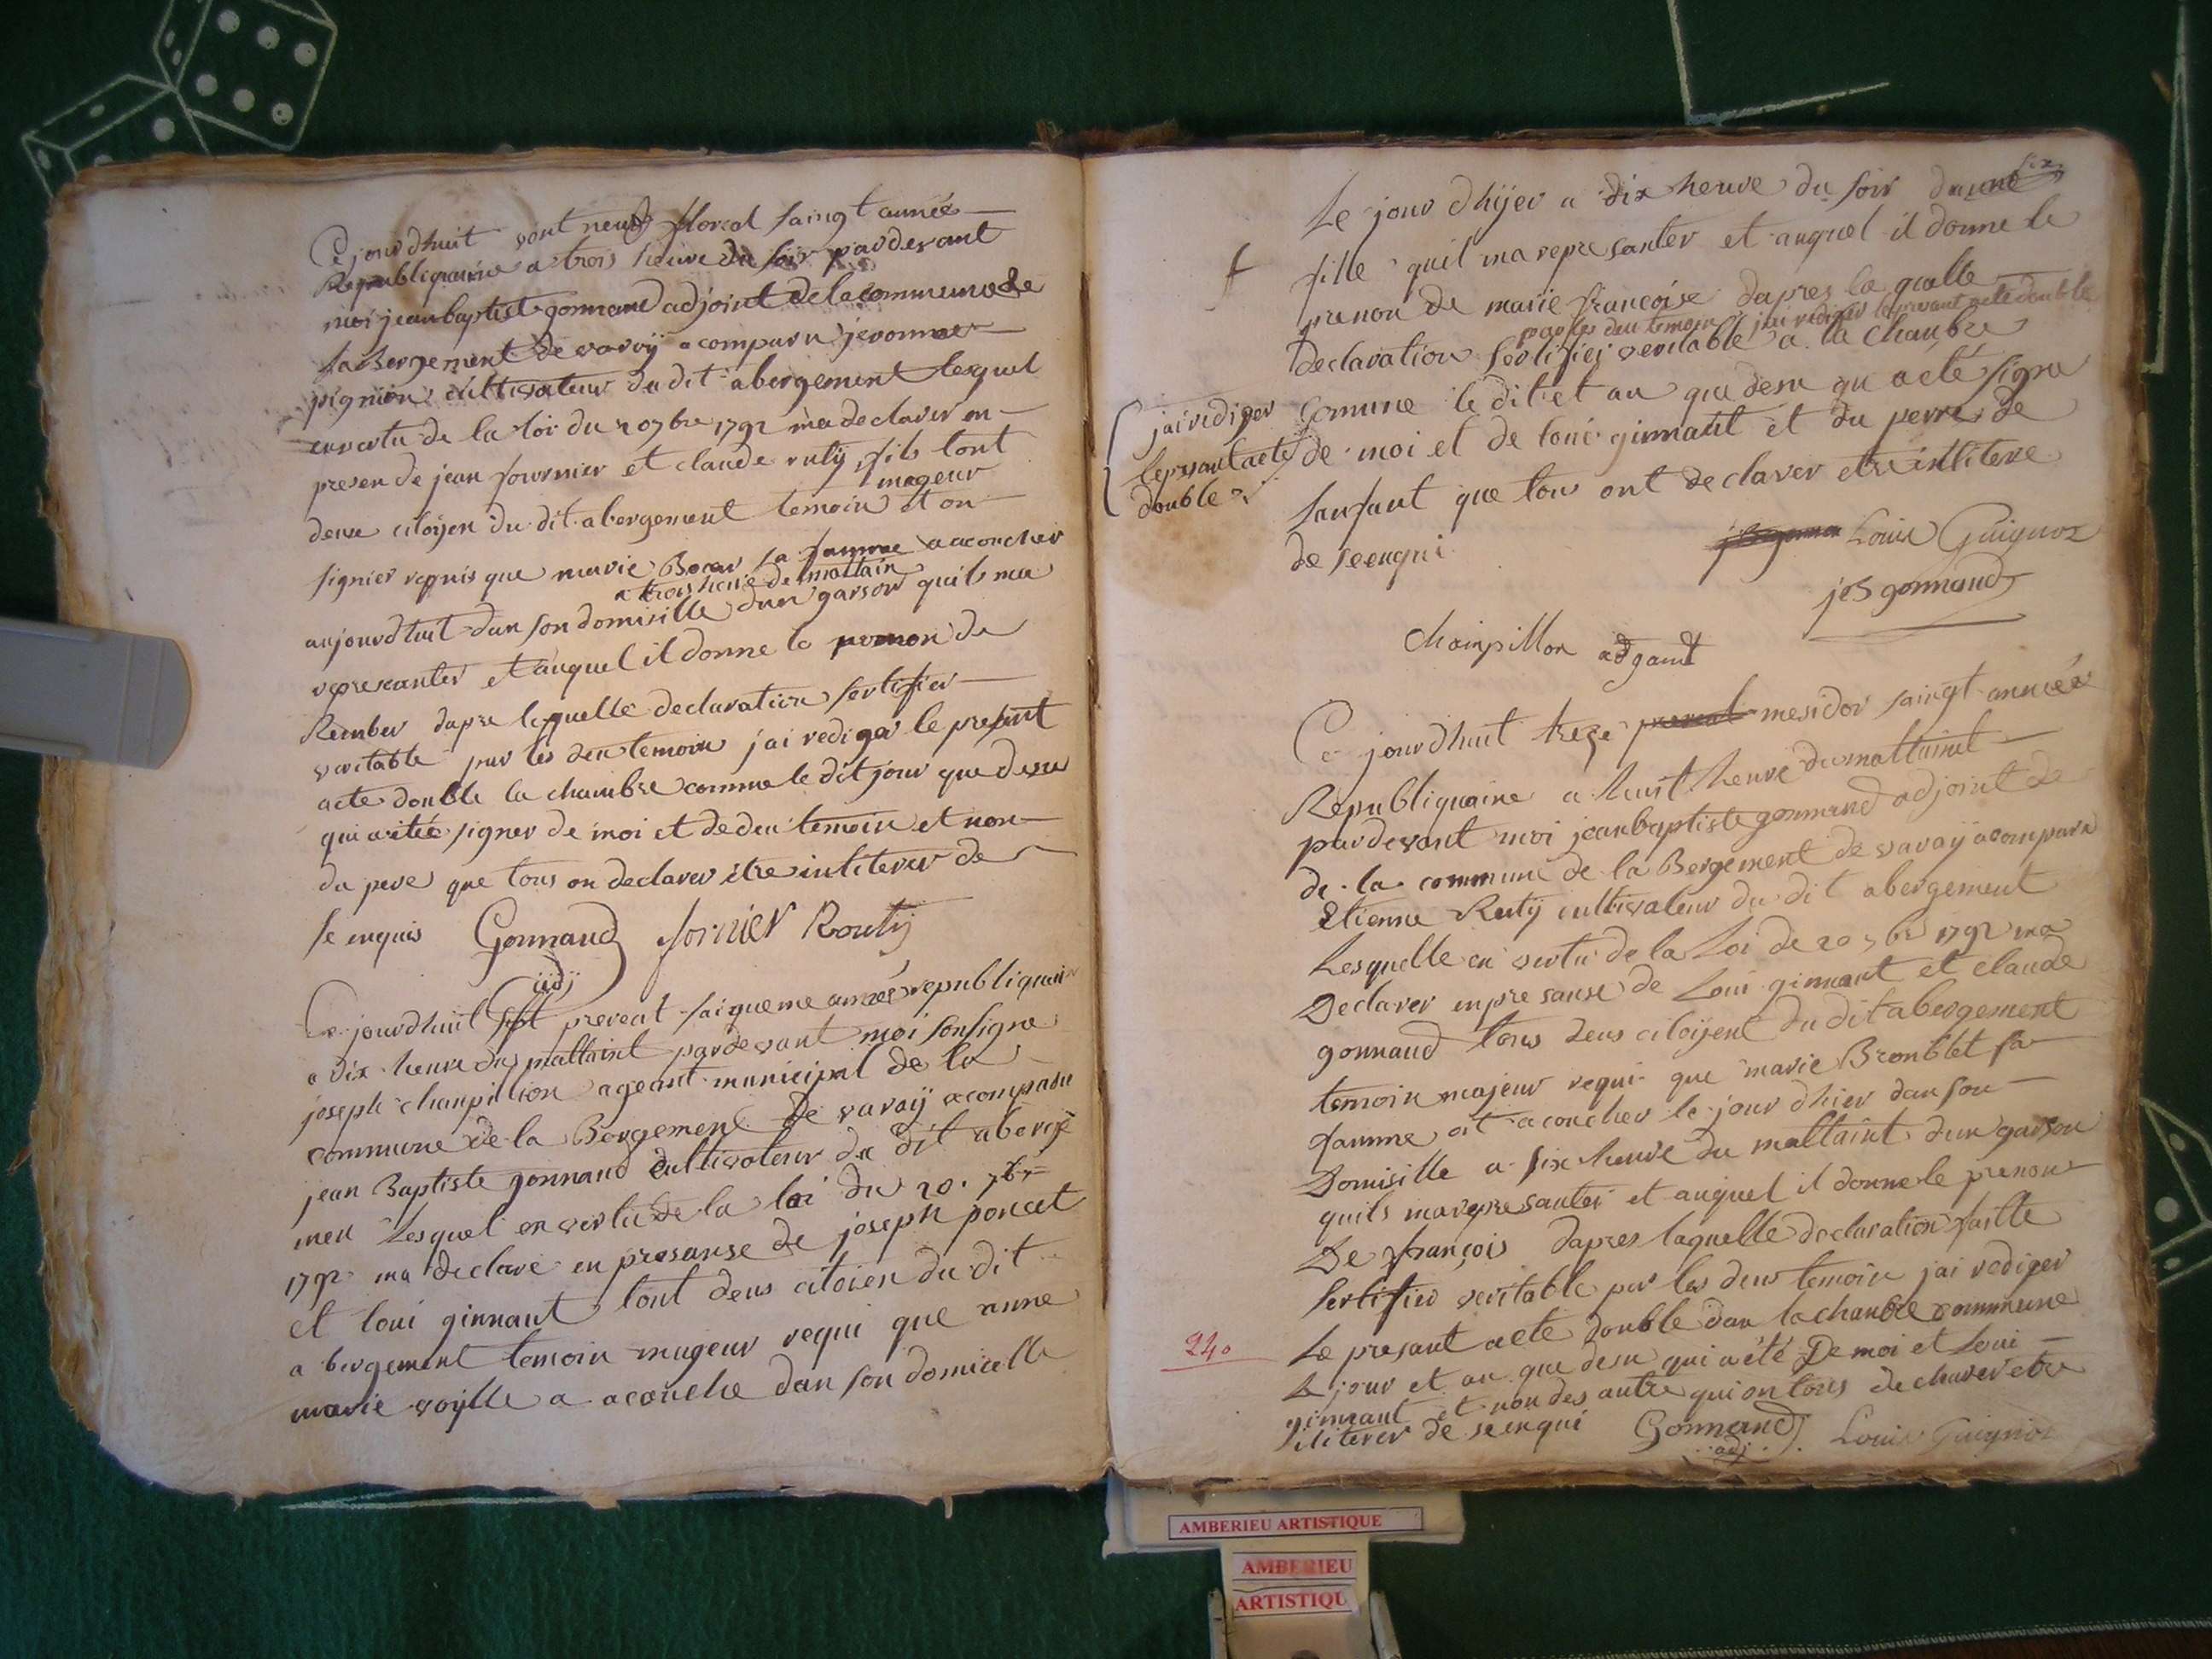 Ce jourdhuit vont neuf floreal saingt année
Republiquaine a trois heure du soir pardevant
moi jeanbaptiste gonnand adjoint de la commune de
labergement de varaÿ a comparu jeronme
pignion cultivateur du dit abergement lesquel
en vertu de la loi du 20 7bre 1792 ma declarer en
presen de jean fournier et claude rutÿ fils tout
mageur
deux citoÿen du dit abergement temoin et on
signier requis que marie sa famme a acoucher
a trois heure de mattain
aujourdhuit dan son domisille dun garson quil ma
representer et auquel il donne le prenon de
Rember dapre lequelle declaration sertifier
veritable par les deu temoin jai rediger le present
acte double la chambre comme le dit jour que desu
qui a itée signer de moi et de deu temoin et non
du pere que tous on declarer être inliterer de
se enquis Gonnand fornier Routÿ
adj
Ce jourdhuit sept prereat saiqueme année republiquain
a dix heure du mattaint pardevant moi sousigne
joseph chanpillion ageant municipal de la
commune de la Bergement de varaÿ a comparu
jean Baptiste gonnand cultivateur du dit aberge
men lesquel en vertu de la loi du 20 7br
1792 ma declaré en presanse de joseph poncet
et loui ginnant tout deus citoien du dit
abergement temoin mageur requi que anne
marie voÿlle a acouche dan son domicelle
Le jour dhijer a dix heure du soir dune
six
fille quil ma represanter et auquel il donne le
prenon de marie francoise dapres la quelle
par les deu temoin jai rediger le present acte double
declaration sertifiei veritable a la chanbre
jai rediger
le presant acte
double
comune le dit et an que desu qui a eté signe
de moi et de loui ginnant et du perre de
lanfant que tous ont declarer etre inlitere
de seenqui
Louis Guignot
jbs gonnand
Chainpillon adgant
Ce jourdhuit treze prereal mesidor saingt année
Republiquaine a huit heure du mattaint
pardevant moi jeanbaptiste gonnand adjoint de
de la commune de la Bergement de varaÿ a comparu
Etienne Rutÿ cultivateur du dit abergement
Lesquelle en vertu de la Loi de 20 7br 1792 ma
Declarer en pre sanse de Loui ginnant et claude
gonnand tous deus citoÿent du dit abergement
temoin majeur requi que marie Bronblet sa
famme at acoucher le jour dhier dan son
Domisille a six heure du mattaint dun garson
quils ma represanter et auquel il donne le prenon
De françois dapres laquelle declaration faitte
sertifier veritable par les deus temoin jai rediger
240
Le presant acte double dan la chanbre commune
le jour et an que desu qui a été De moi et Loui
ginnant et non des autre qui on tous declarer etre
iliterer de se enqui Gonnand Louis Guignot
adj
AMBERIEU ARTISTIQUE
AMBERIEU
ARTISTIQU